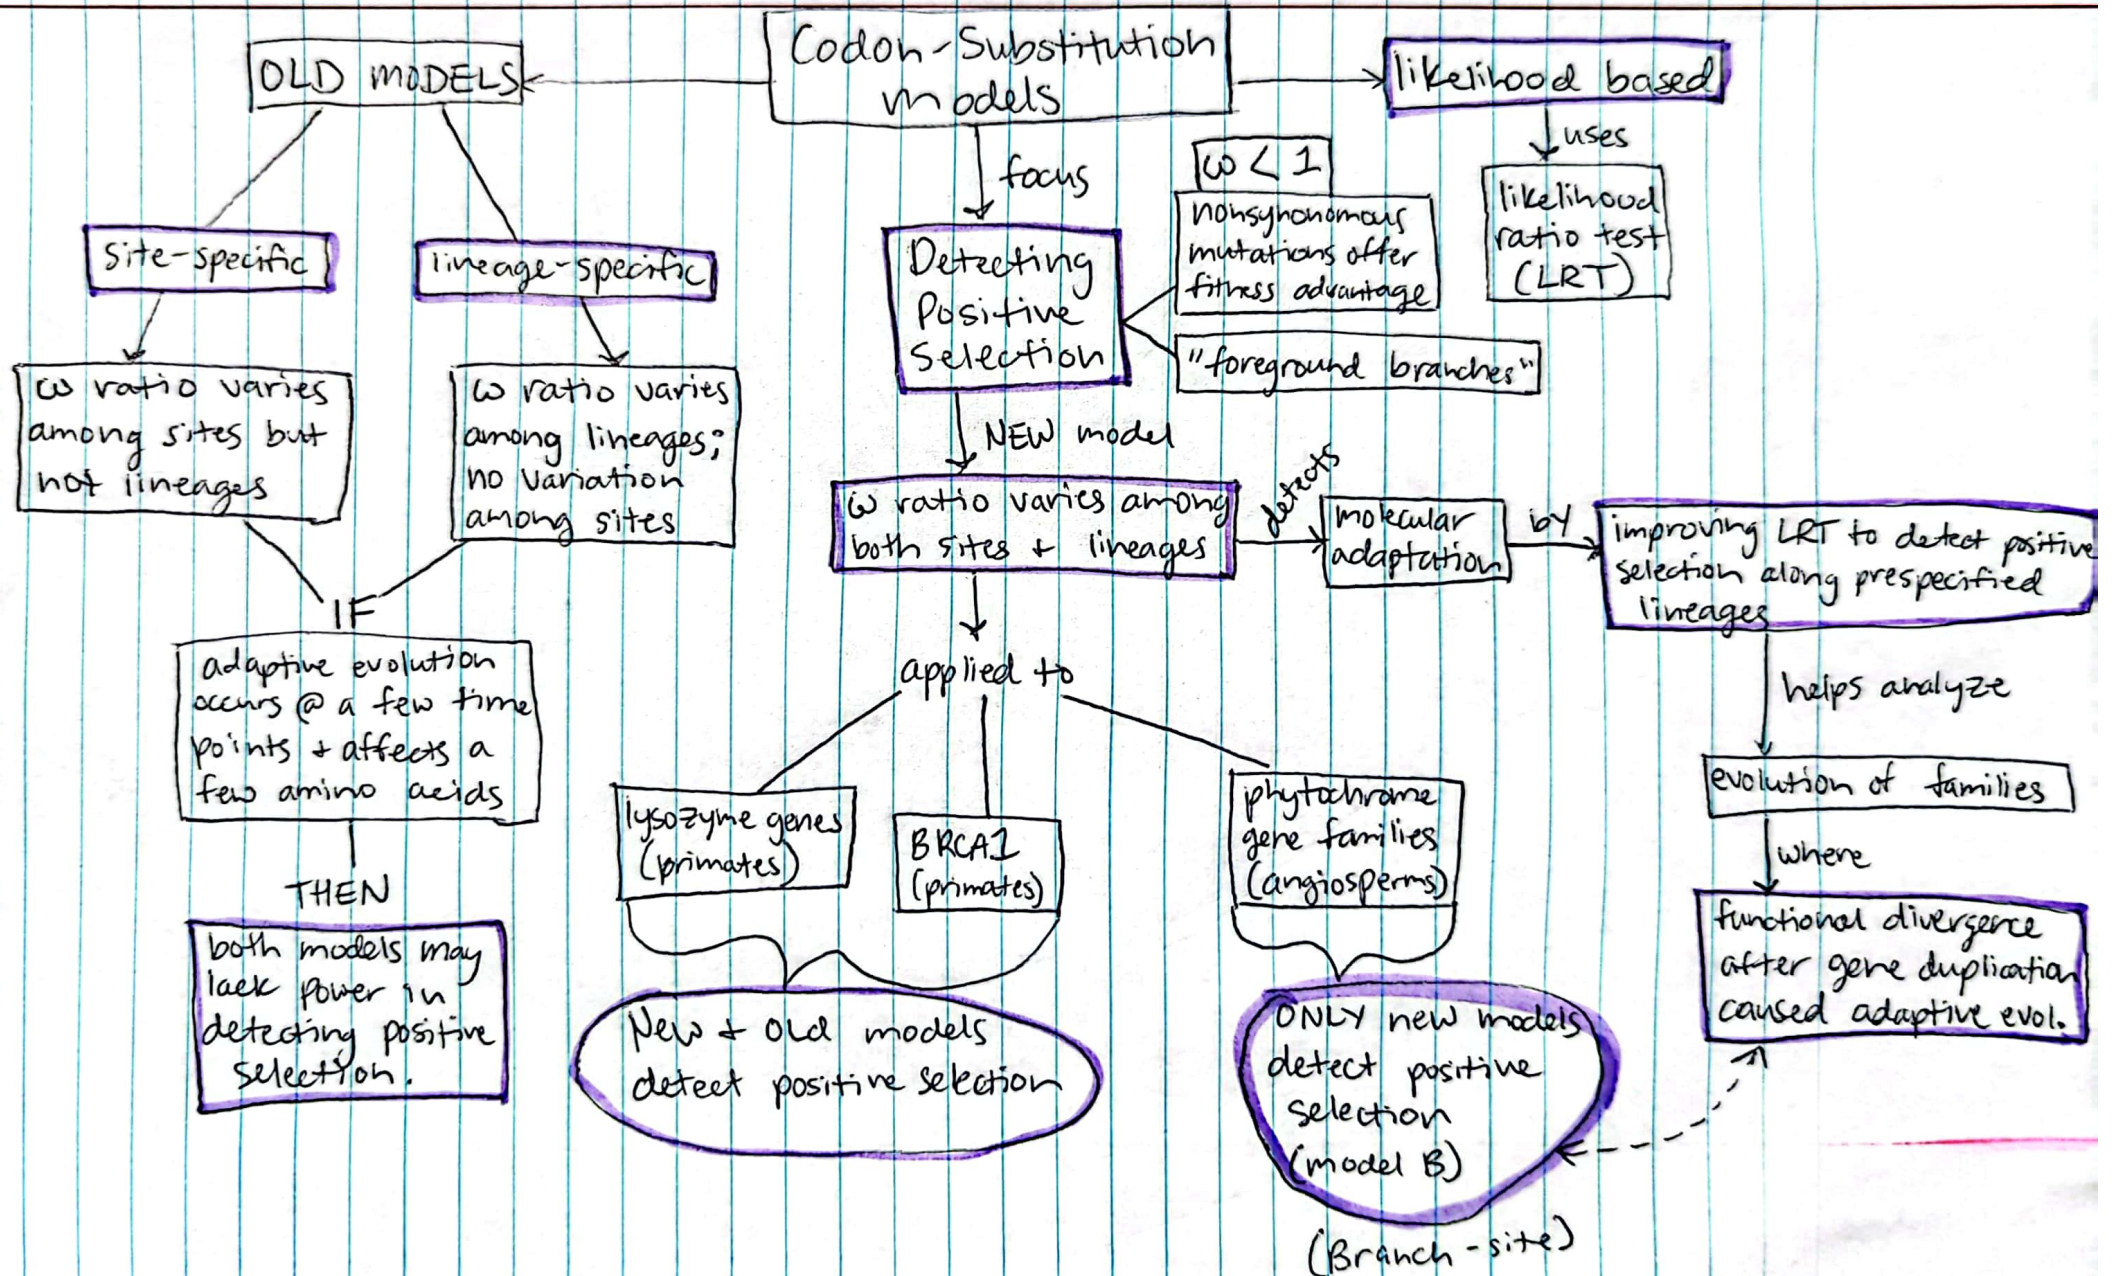 Codon-Substitution
models
OLD MODELS
likelihood based
uses
likelihood
ratio test
(LRT)
focus
ω < 1
nonsynonomous
mutations offer
fitness advantage
Detecting
Positive
Selection
"foreground branches"
site-specific
lineage-specific
ω ratio varies
among sites but
not lineages
ω ratio varies
among lineages;
no variation
among sites
IF
adaptive evolution
occurs @ a few time
points + affects a
few amino acids
THEN
both models may
lack power in
detecting positive
selection.
NEW model
ω ratio varies among
both sites + lineages
detects
molecular
adaptation
by
improving LRT to detect positive
selection along prespecified
lineages
helps analyze
evolution of families
where
functional divergence
after gene duplication
caused adaptive evol.
applied to
lysozyme genes
(primates)
BRCA1
(primates)
phytochrome
gene families
(angiosperms)
New + Old models
detect positive selection
ONLY new models
detect positive
selection
(model B)
(Branch-site)